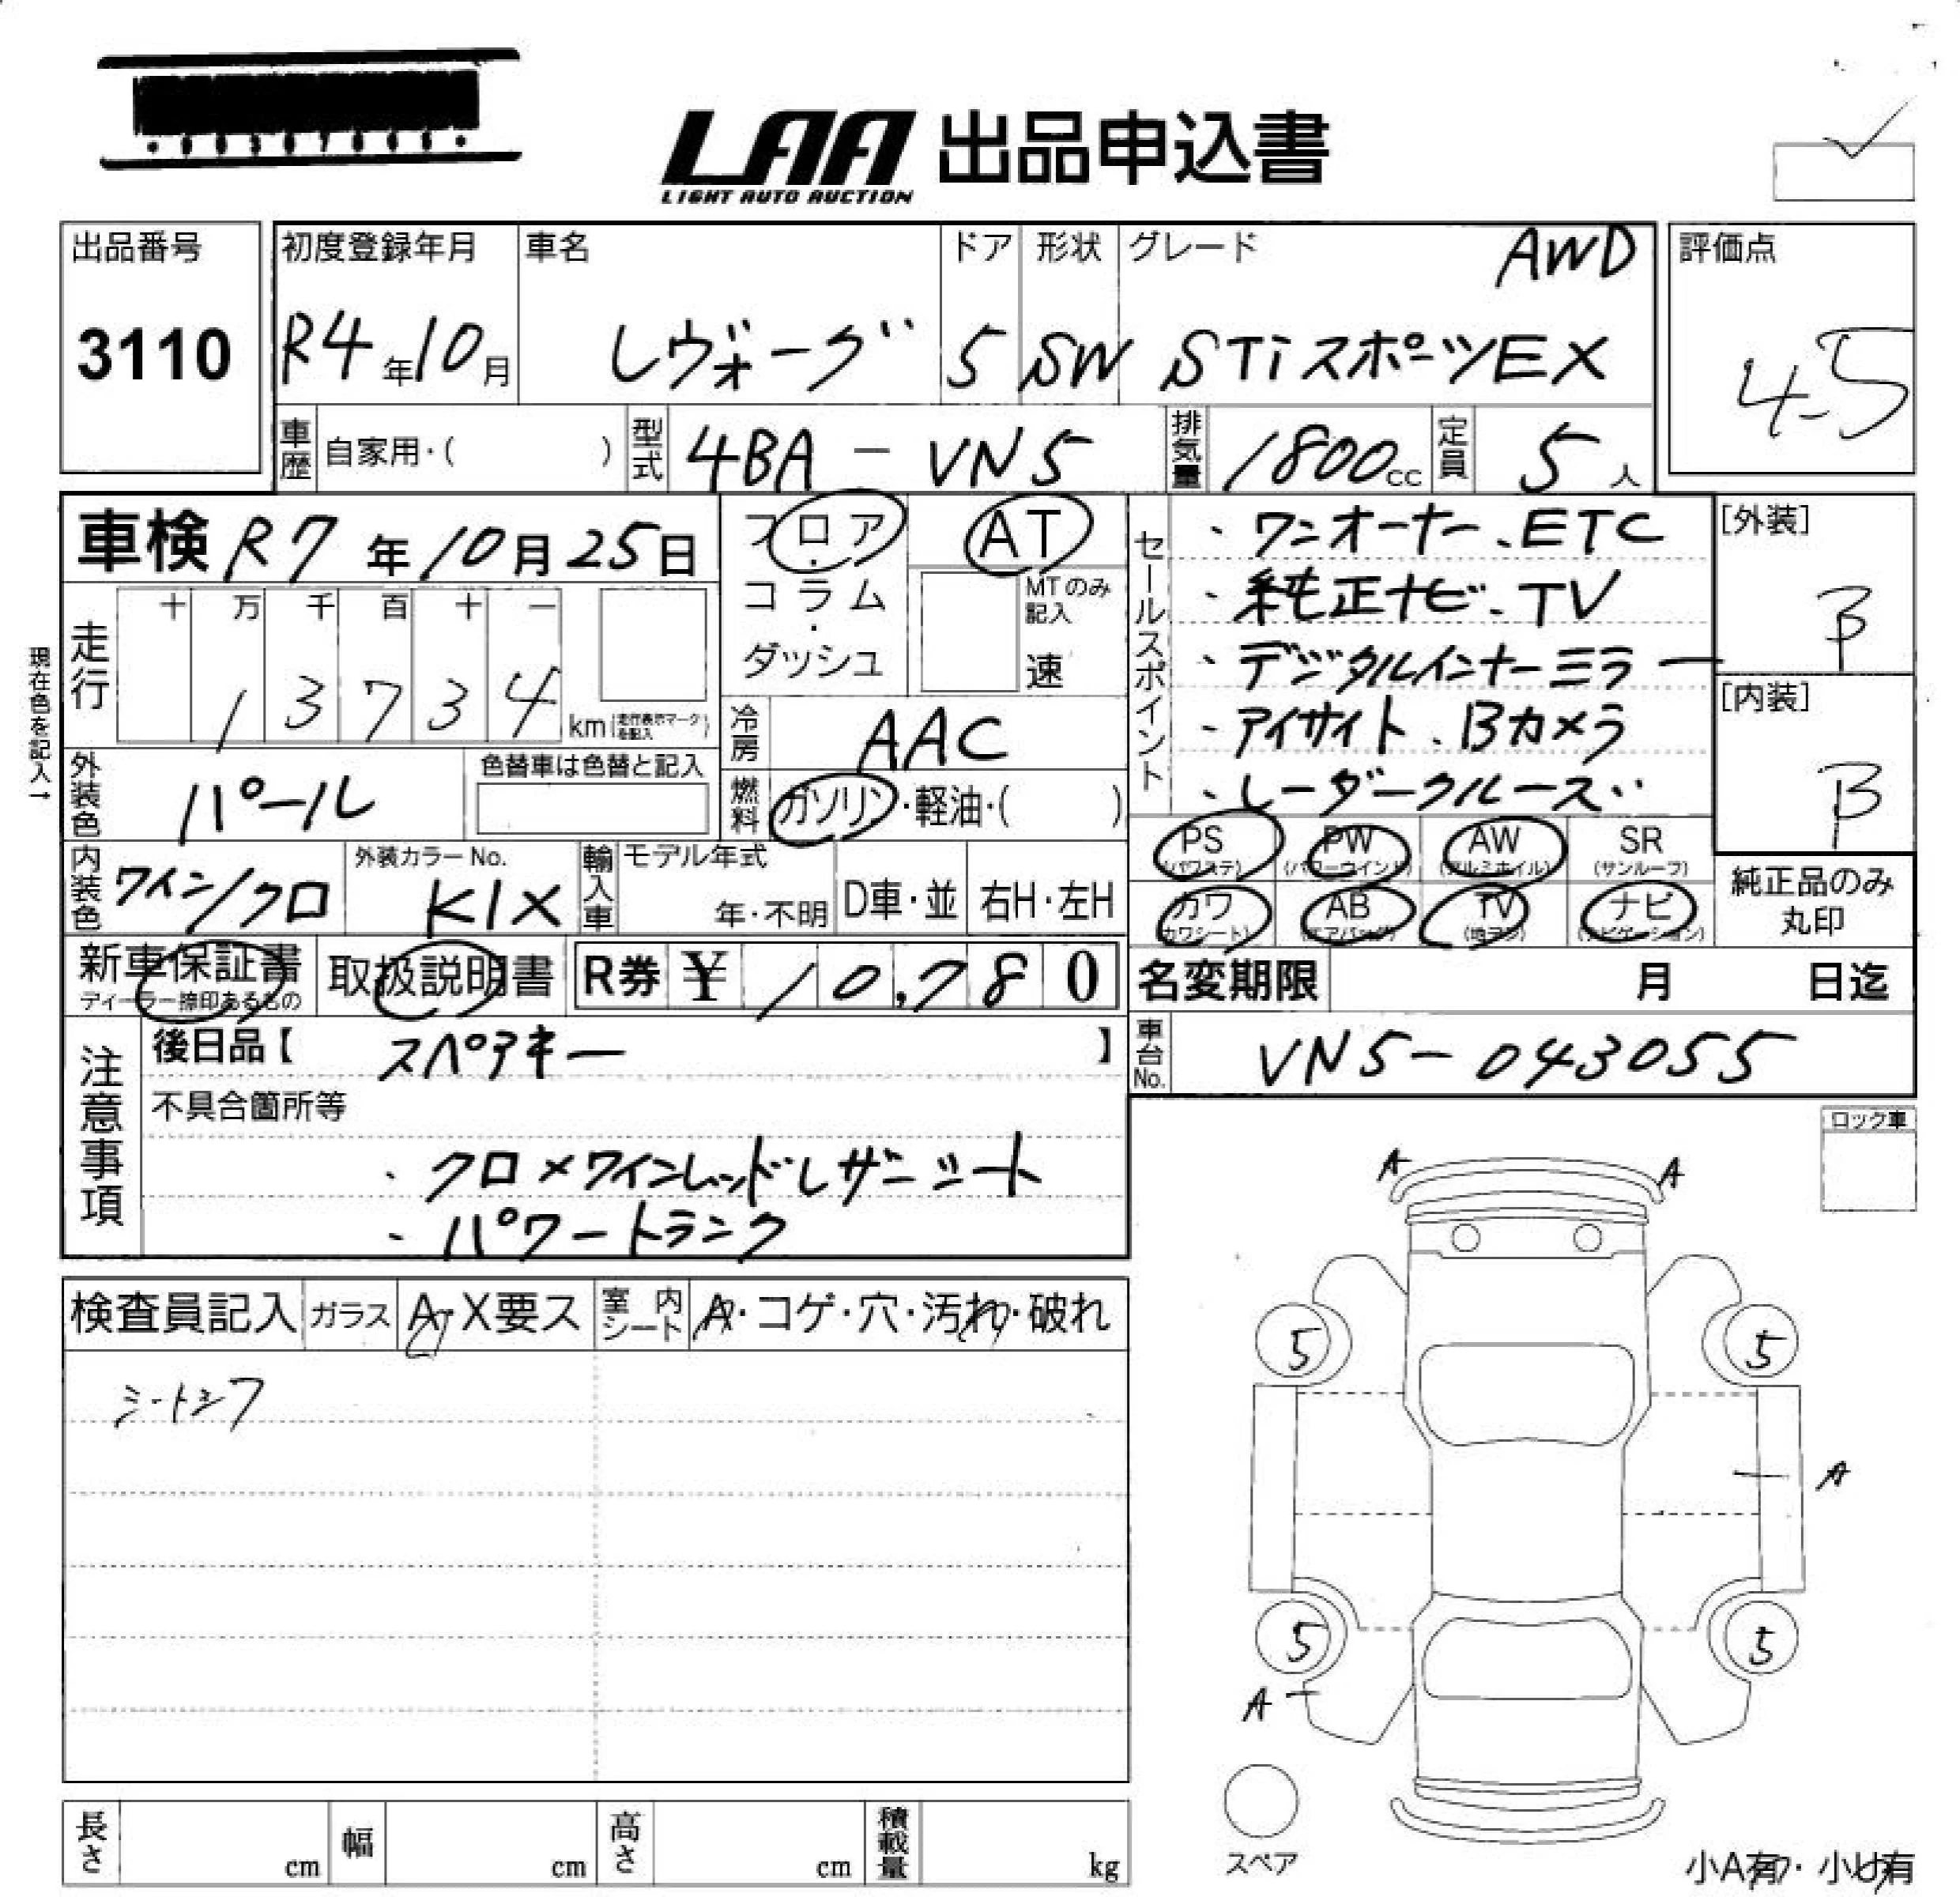 LAA 出品申込書
LIGHT AUTO AUCTION
出品番号
3110
初度登録年月
R4年10月
車名
レヴォーグ
ドア
5
形状
SW
グレード
AWD
STiスポーツEX
評価点
4.5
車歴 自家用・( )
型式 4BA - VN5
排気量 1800cc
定員 5人
車検 R7年10月25日
フロア・コラム・ダッシュ
AT
MTのみ記入
速
走行
十 万 千 百 十 一
1 3 7 3 4 km(走行表示マークを記入)
現在色を記入→
外装色 パール
色替車は色替と記入
冷房 AAC
燃料 ガソリン・軽油・( )
セールスポイント
・ワンオーナー、ETC
・純正ナビ、TV
・デジタルインナーミラー
・アイサイト、Bカメラ
・レーダークルーズ
[外装]
B
[内装]
B
内装色 ワイン/クロ
外装カラーNo.
K1X
輸入車
モデル年式
年・不明
D車・並
右H・左H
PS (パワステ)
PW (パワーウインド)
AW (アルミホイル)
SR (サンルーフ)
カワ (カワシート)
AB (エアバッグ)
TV (地デジ)
ナビ (ナビゲーション)
純正品のみ
丸印
新車保証書
ディーラー捺印あるもの
取扱説明書
R券 ¥ 10,780
名変期限 月 日迄
車台No. VN5-043055
注意事項
後日品【 スペアキー 】
不具合箇所等
・クロ×ワインレッドレザーシート
・パワートランク
ロック車
検査員記入
ガラス A・X要ス
室内シート A・コゲ・穴・汚れ・破れ
A
A
5
5
A
5
5
A
スペア
小A有・小U有
長さ cm
幅 cm
高さ cm
積載量 kg